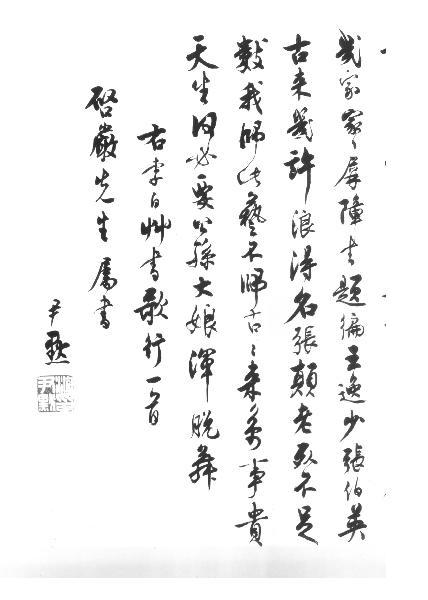 幾家家〻屏障書題徧王逸少張伯英
古来幾許浪得名張顛老死不足
數我師此藝不師古〻来萬事貴
天生何必要公孫大娘渾脱舞
右李白艸書歌行一首
啓嚴先生屬書
尹默